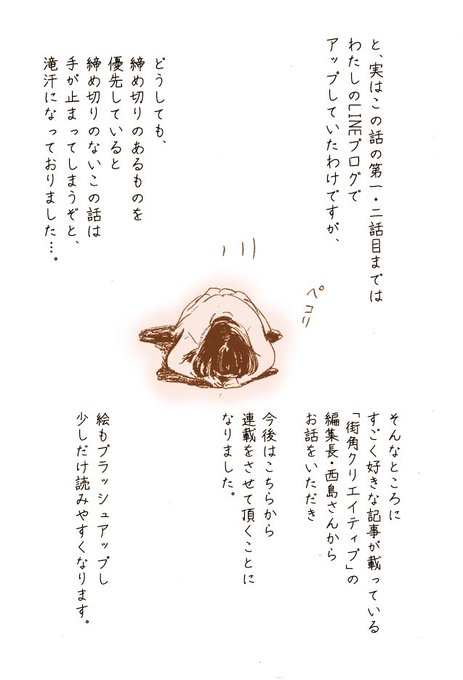 と、実はこの話の第一・二話目までは
わたしのLINEブログで
アップしていたわけですが、
どうしても、
締め切りのあるものを
優先していると
締め切りのないこの話は
手が止まってしまうぞと、
滝汗になっておりました…。
ペコリ
そんなところに
すごく好きな記事が載っている
「街角クリエイティブ」の
編集長・西島さんから
お話をいただき
今後はこちらから
連載をさせて頂くことに
なりました。
絵もブラッシュアップし
少しだけ読みやすくなります。